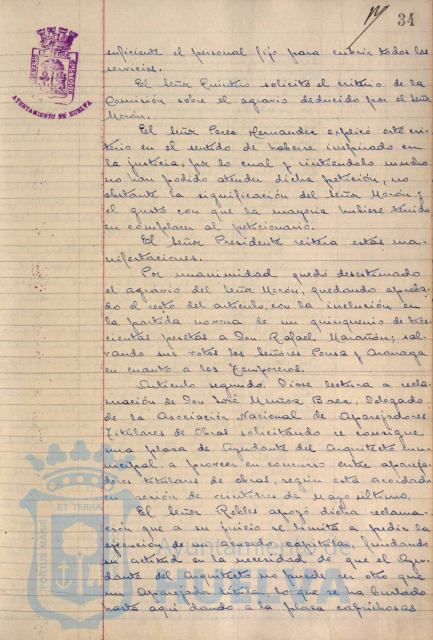 34
suficiente el personal fijo para cubrir todos los
servicios.
El Señor Quintero solicitó el criterio de la
Comisión sobre el agravio deducido por el Señor
Morón.
El Señor Perez Hernandez explicó este cri-
terio en el sentido de haberse inspirado en
la justicia, por lo cual y sintiendolo mucho
no han podido atender dicha petición, no
obstante la significación del Señor Morón y
el gusto con que la mayoria hubiese tenido
en complacer al peticionario.
El Señor Presidente reitera estas ma-
nifestaciones.
Por unanimidad quedó desestimado
el agravio del Señor Morón, quedando aproba-
do el resto del articulo, con la inclusión en
la partida novena de un quinquenio de tres-
cientas pesetas a Don Rafael Marañón, sal-
vando sus votos los Señores Ponsa y
en cuanto a los Temporeros.
Articulo segundo. Diose lectura a recla-
mación de Don José Muñoz Baez, Delegado
de la Asociación Nacional de Aparejadores
Titulares de Obras solicitando se consigne
una plaza de Ayudante del Arquitecto mu-
nicipal a proveer en concurso entre apareja-
dores titulares de obras, según está acordado
en sesión de veintitres de Mayo último.
El Señor Robles apoyó dicha reclama-
ción que a su juicio se limita a pedir la
ejecución de un acuerdo capitular, fundando
su actitud en la necesidad de que el Ayu-
dante del Arquitecto no puede ser otro que
un Aparejador titular, lo que se ha burlado
hasta aqui dando a la plaza caprichosas
AYUNTAMIENTO DE HUELVA
PORTUS MARIS ET TERRAE
Ayuntamiento de
HUELVA